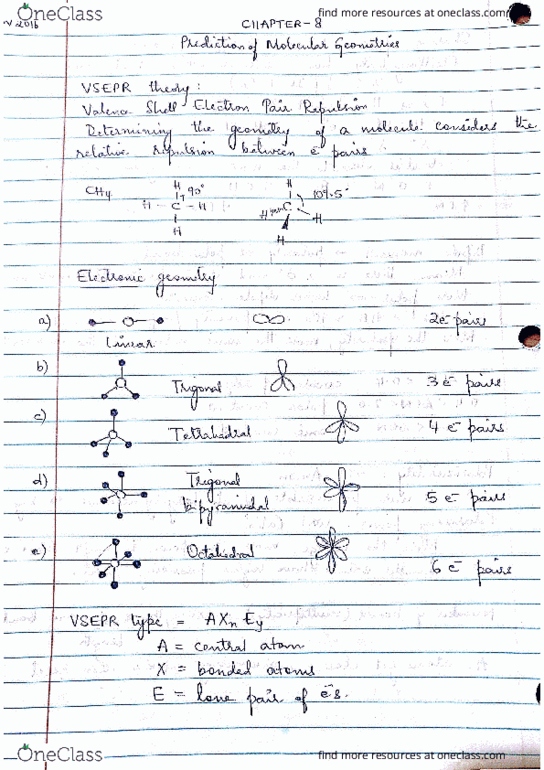 OneClass
find more resources at oneclass.com
2016
CHAPTER-8
Prediction of Molecular Geometries
VSEPR theory:
Valence Shell Electron Pair Repulsion
Determining the geometry of a molecule considers the
relative repulsion between e⁻ pairs
CH4
H
90°
H - C - H
H
H
109.5°
C
H
H
H
Electronic geometry
a)
2e⁻ pairs
Linear
b)
Trigonal
3 e⁻ pairs
c)
Tetrahedral
4 e⁻ pairs
d)
Trigonal
bipyramidal
5 e⁻ pairs
e)
Octahedral
6 e⁻ pairs
VSEPR type = AXn Ey
A = central atom
X = bonded atoms
E = lone pair of e⁻s.
OneClass
find more resources at oneclass.com